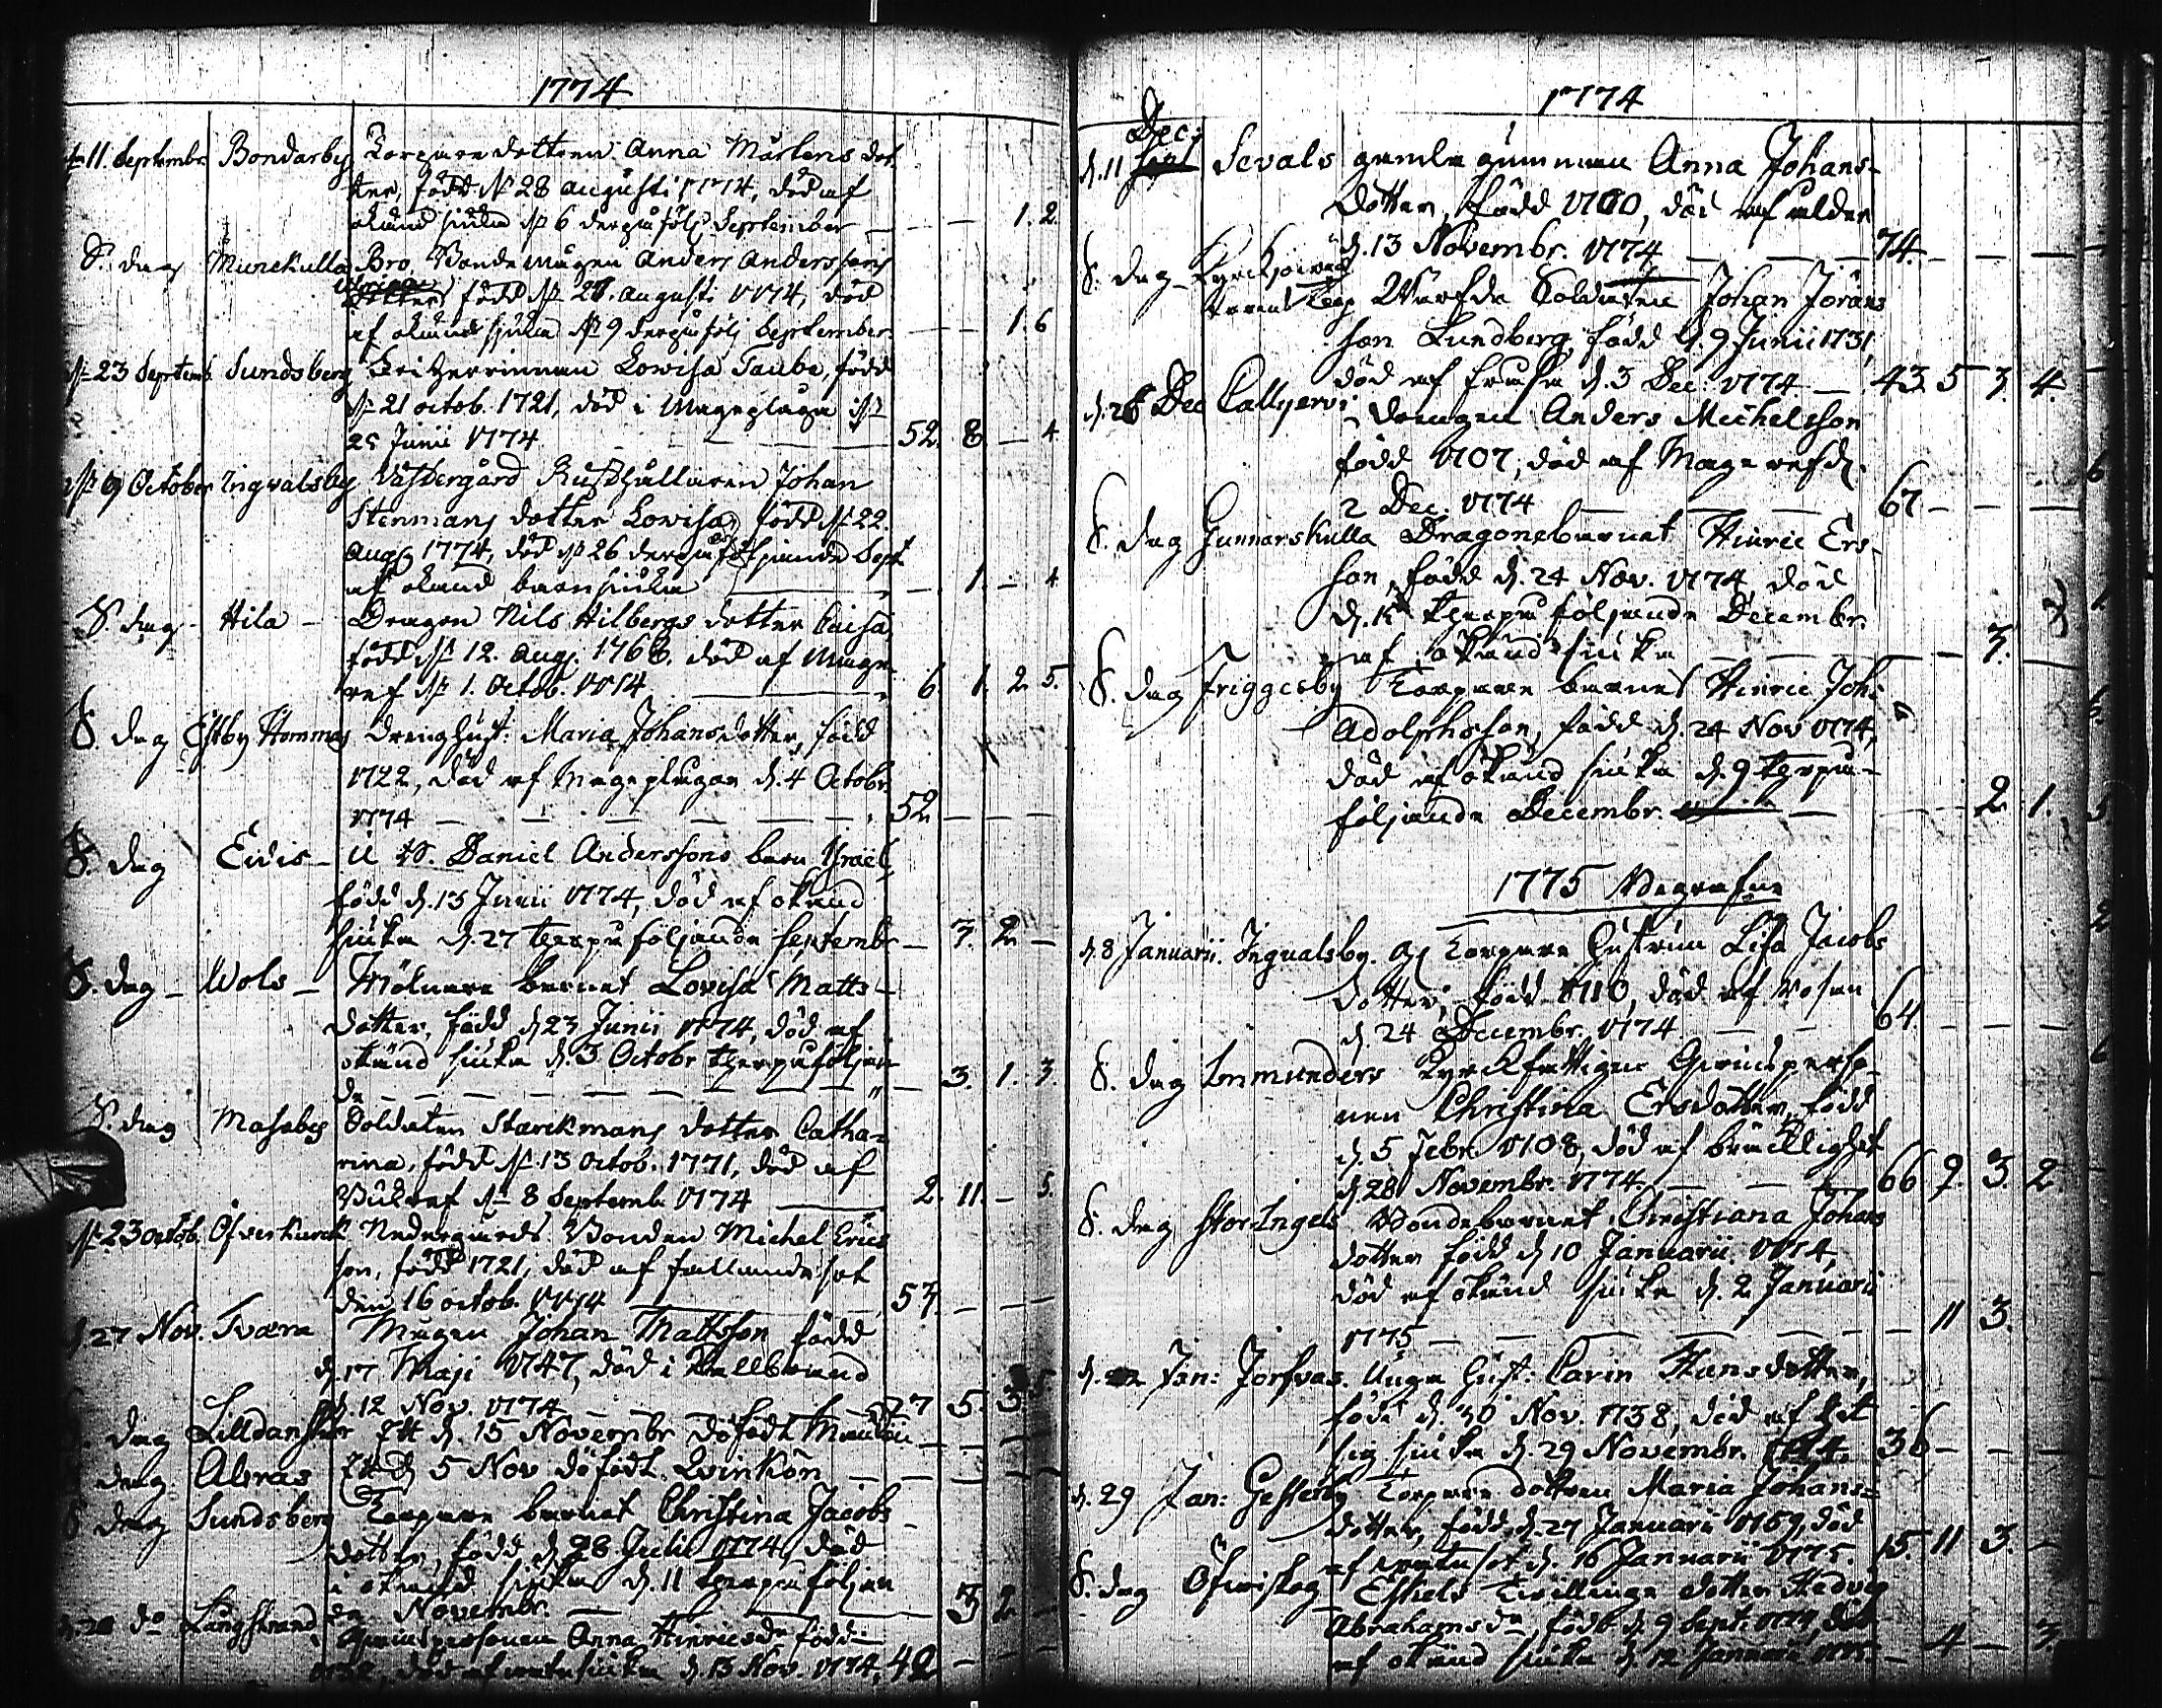 1774
11. Septembr. Bondarby Torpare dottren Anna Mårtens dot
ter, född d. 28 augusti 1774, död af
okänd siuka d. 6 derpå följ. September — 1. 2.
S. dag Munckulla Bro, Bonde mågen Anders Anderssons
född d. 28. augusti 1774, död
af okänd sjuka d. 9 derpå följ September — — 1. 6
d. 23 Septemb. Sundsberg Friherrinnan Lowisa Taube, född
d. 21 octob. 1721, död i Mageplåga d.
25 Junii 1774 — 52. 8. — 4
d. 9 October Ingvalsby Västergård Rusthållaren Johan
Stenmans dotter Lowisa, född d. 22.
Aug. 1774, död d. 26 derpåföljande Sept.
af okänd barnsiuka — 1. — 4
S. dag - Hila - Dragon Nils Hilbergs dotter Caisa,
född d. 12. Aug. 1768. död af Mage
ref d. 1. Octob. 1774 — 6. 1. 2. 5.
S. dag Estby Hommas drenghust: Maria Johansdotter, född
1722, död af Mageplågan d. 4 Octobr.
1774 — 52 — — —
S. dag Eivis - Daniel Anderssons barn Israel,
född d. 13 Junii 1774, död af okänd
siuka d. 27 therpå följande Septembr — 3. 2. —
S. dag - Wols - Mölnare barnet Lovisa Matts-
dotter, född d. 23 Junii 1774, död af
okänd siuka d. 3 Octobr therpåföljan
de — 3. 1. 3.
S. dag Masaby Soldaten Starckmans dotter Catha=
rina, född d. 13 Octob. 1771, död af
Bukref d. 8 Septemb. 1774 — 2. 11. — 5.
d. 23 octob. Öfverkurck Nedergårds Bonden Michel Erics
son, född 1721, död af fallandesot
den 16 octob. 1774 — 53. — — —
d. 27 Nov. Tvärn Mågen Johan Mattsson född
d. 17 Maji 1747, död i Kallbrand
d. 12 Nov. 1774 — 27 5. 3. 5
dag Lilldanskar Ett d. 15 Novembr dödfödt Mankön — —
dag Abras Ett d. 5 Nov dödfödt Qvinkön — —
S dag Sundsberg Torpare barnet Christina Jacobs
dotter, född d. 28 Julii 1774, död
i okänd siuka d. 11 therpåföljan
de Novembr. — 3 2 —
do Långstrand Qvinspersonen Anna Hinricsdr född
1732, död af d. 13 Nov. 1774, 42 — —
1774
Dec:
d. 11 Sevals gamla gumman Anna Johans-
dotter, född 1700, död af ålder
d. 13 Novembr. 1774 — 74. — — —
S. dag Kyrckjo
torp Värfda Soldaten Johan Jörans
son Lundberg född d. 9 Junii 1731,
död af d. 3 Dec: 1774 — 43. 5 3. 4.
d. 26 Dec Calljervi drengen Anders Michelsson
född 1707, död af Magaref d.
2 Dec. 1774 — 67 — — —
S. dag Gunnarskulla Dragonebarnet Hinric Ers-
son, född d. 24 Nov. 1774, död
d. 15 therpå följande Decembr.
af okänd siuka — 3.
S. dag Friggesby Torpare barnet Hinric Joh:
Adolphsson, född d. 24 Nov 1774,
död af okänd siuka d. 9 therpå-
följande Decembr. — 2. 1.
1775 Begrafne
d. 8 Januarii. Ingvalsby. Torpare hustrun Lisa Jacobs
dotter, född 1710, död af rosen
d. 24 Decembr. 1774 — 64 — — —
S. dag Inmunders Kyrckfattiga Qvinsperso-
nen Christina Ersdotter, född
d. 5 Febr. 1708, död af bräcklighet
d. 28 Novembr. 1774. — 66 9. 3. 2.
S. dag StorIngels Bondebarnet Christiana Johans
dotter född d. 10 Januarii 1774,
död af okänd siuka d. 2 Januarii
1775 — 11 3.
Jan: Jorfvas. Unga Hust: Carin Hansdotter,
född d. 30 Nov. 1738, död af het
sig siuka d. 29 Novembr. 1774. 36 — — —
d. 29 Jan: Gesterby Torpare dottren Maria Johans=
dotter, född d. 27 Januarii 1759, död
d. 16 Januarii 1775. 15. 11 3. —
S. dag Öfwiskog Eskils Tvillinge dotter Hedvig
Abrahamsdr född d. 9 Sept: 1774, död
af okänd siuka d. 12 Januarii 1775 — 4 — 3.